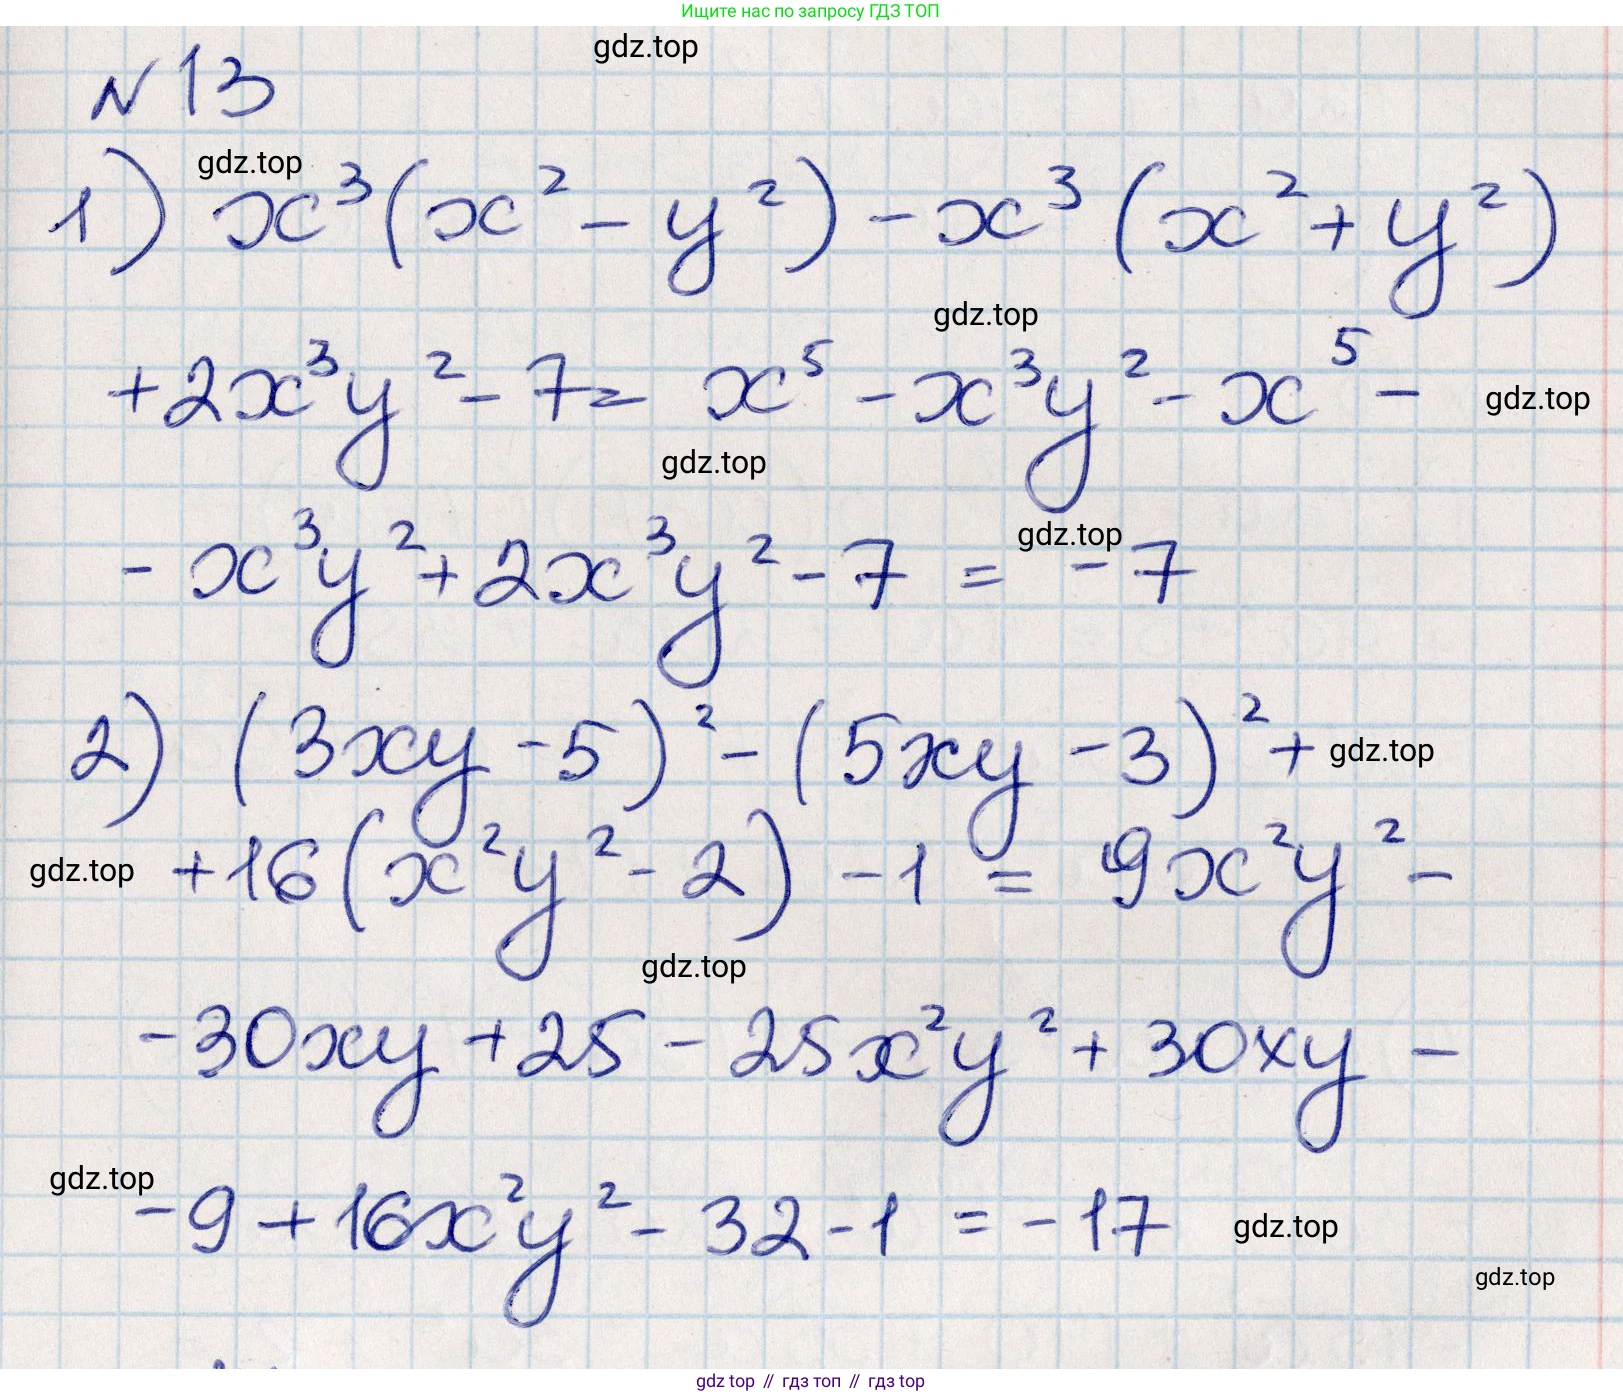 Ищите нас по запросу ГДЗ ТОП
gdz.top
№ 13
gdz.top
1) x³(x² - y²) - x³(x² + y²)
gdz.top
+2x³y² - 7 = x⁵ - x³y² - x⁵ -
gdz.top
gdz.top
gdz.top
- x³y² + 2x³y² - 7 = -7
2) (3xy - 5)² - (5xy - 3)² +
gdz.top
gdz.top
+16(x²y² - 2) - 1 = 9x²y² -
gdz.top
-30xy + 25 - 25x²y² + 30xy -
gdz.top
-9 + 16x²y² - 32 - 1 = -17
gdz.top
gdz.top
gdz.top // гдз топ // гдз top